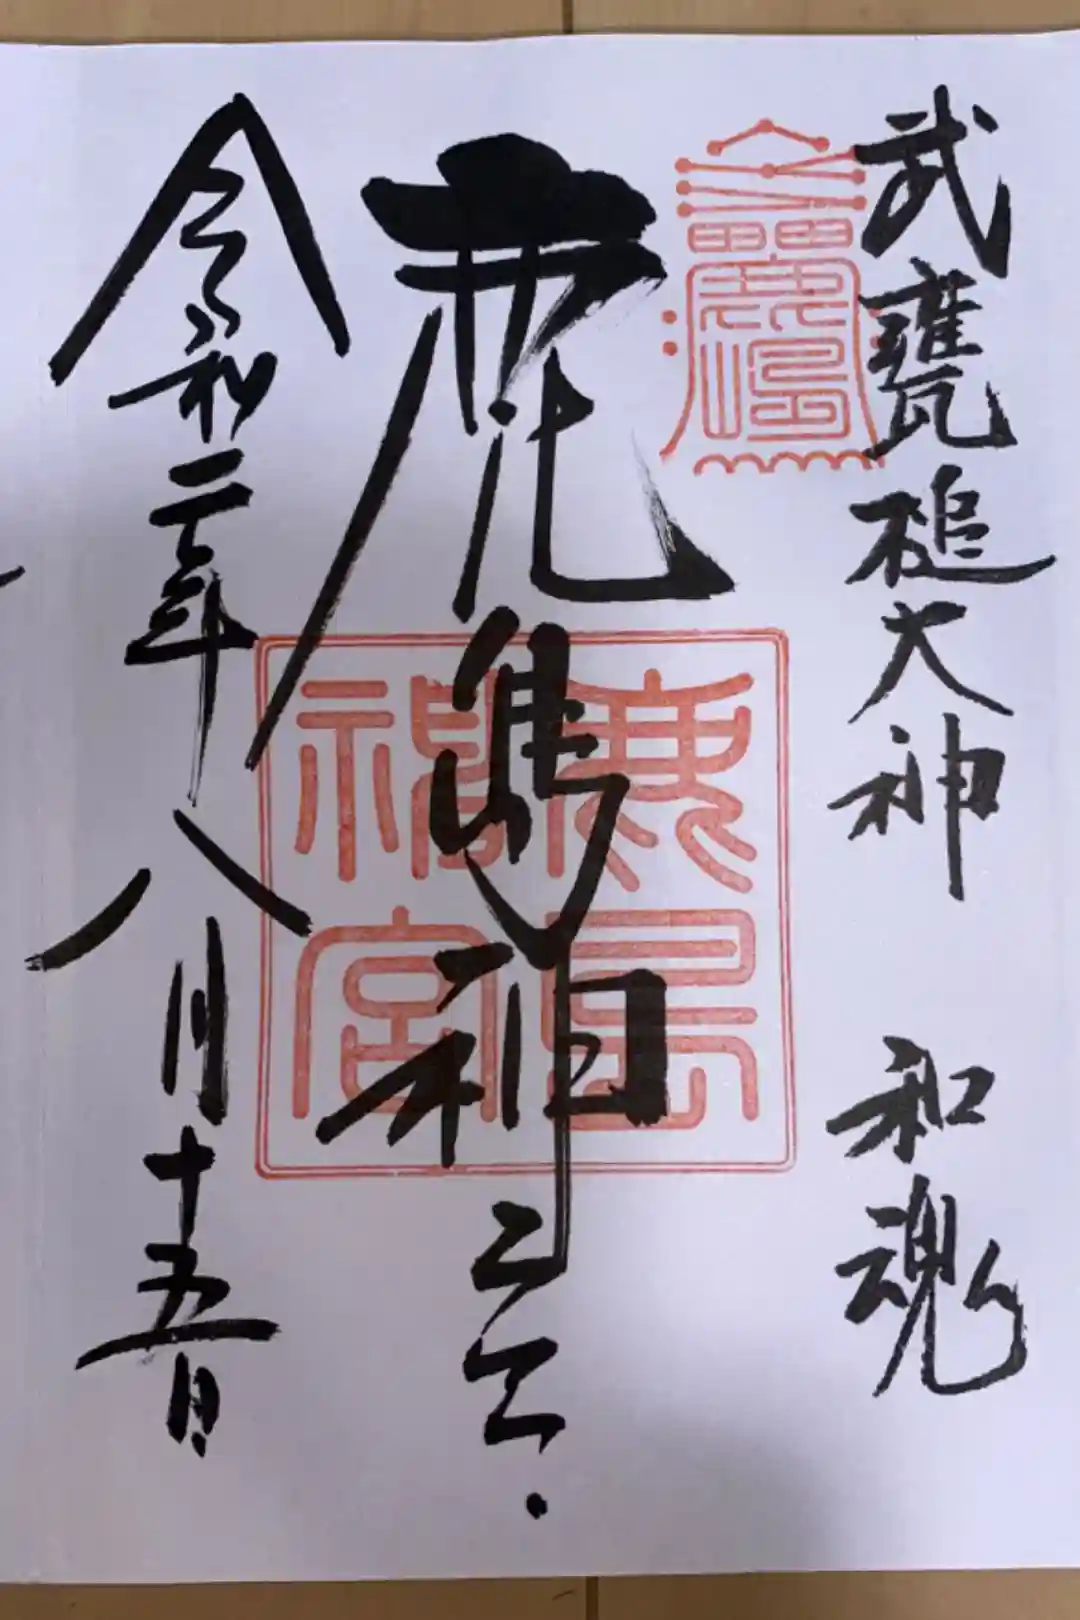 武甕槌大神 和魂
鹿島神宮
鹿島神宮
令和二年八月十五日